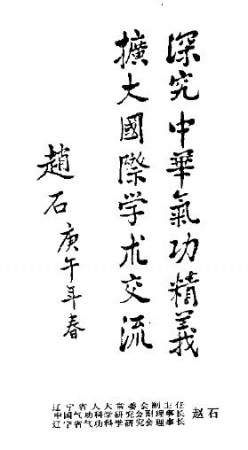 深究中華氣功精義
擴大國際学术交流
趙石 庚午年春
辽宁省人大常委会副主任
中国气功科学研究会副理事长
辽宁省气功科学研究会理事长
赵石